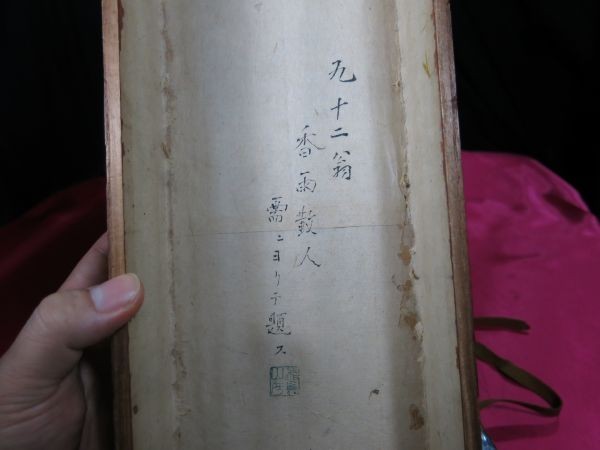 九十二翁
香雨散人
需ニヨリテ題ス